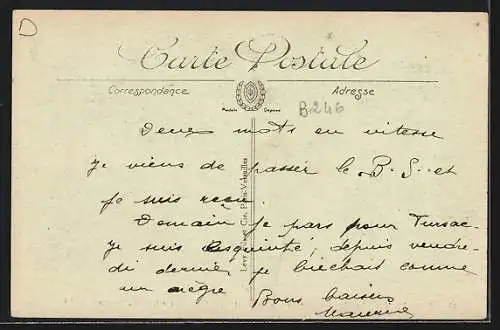 D
Carte Postale
Correspondence
Adresse
Modèle Déposé
B246
Deux mots en vitesse
je viens de passer le B.S. et
je suis reçu.
Demain je pars pour Tursac
je suis esquinté; depuis vendre-
di dernier, je bûchais comme
un nègre Bons baisers
Maurice
Levy et Neurdein Cie, Paris-Versailles